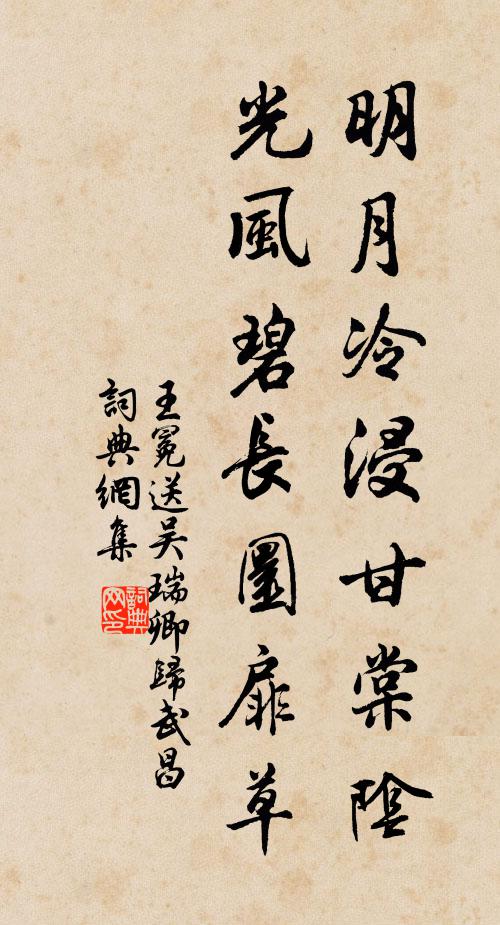 明月冷浸甘棠陰
光風碧長圜扉草
王冕送吴瑞卿歸武昌
詞典網集
詞典网印